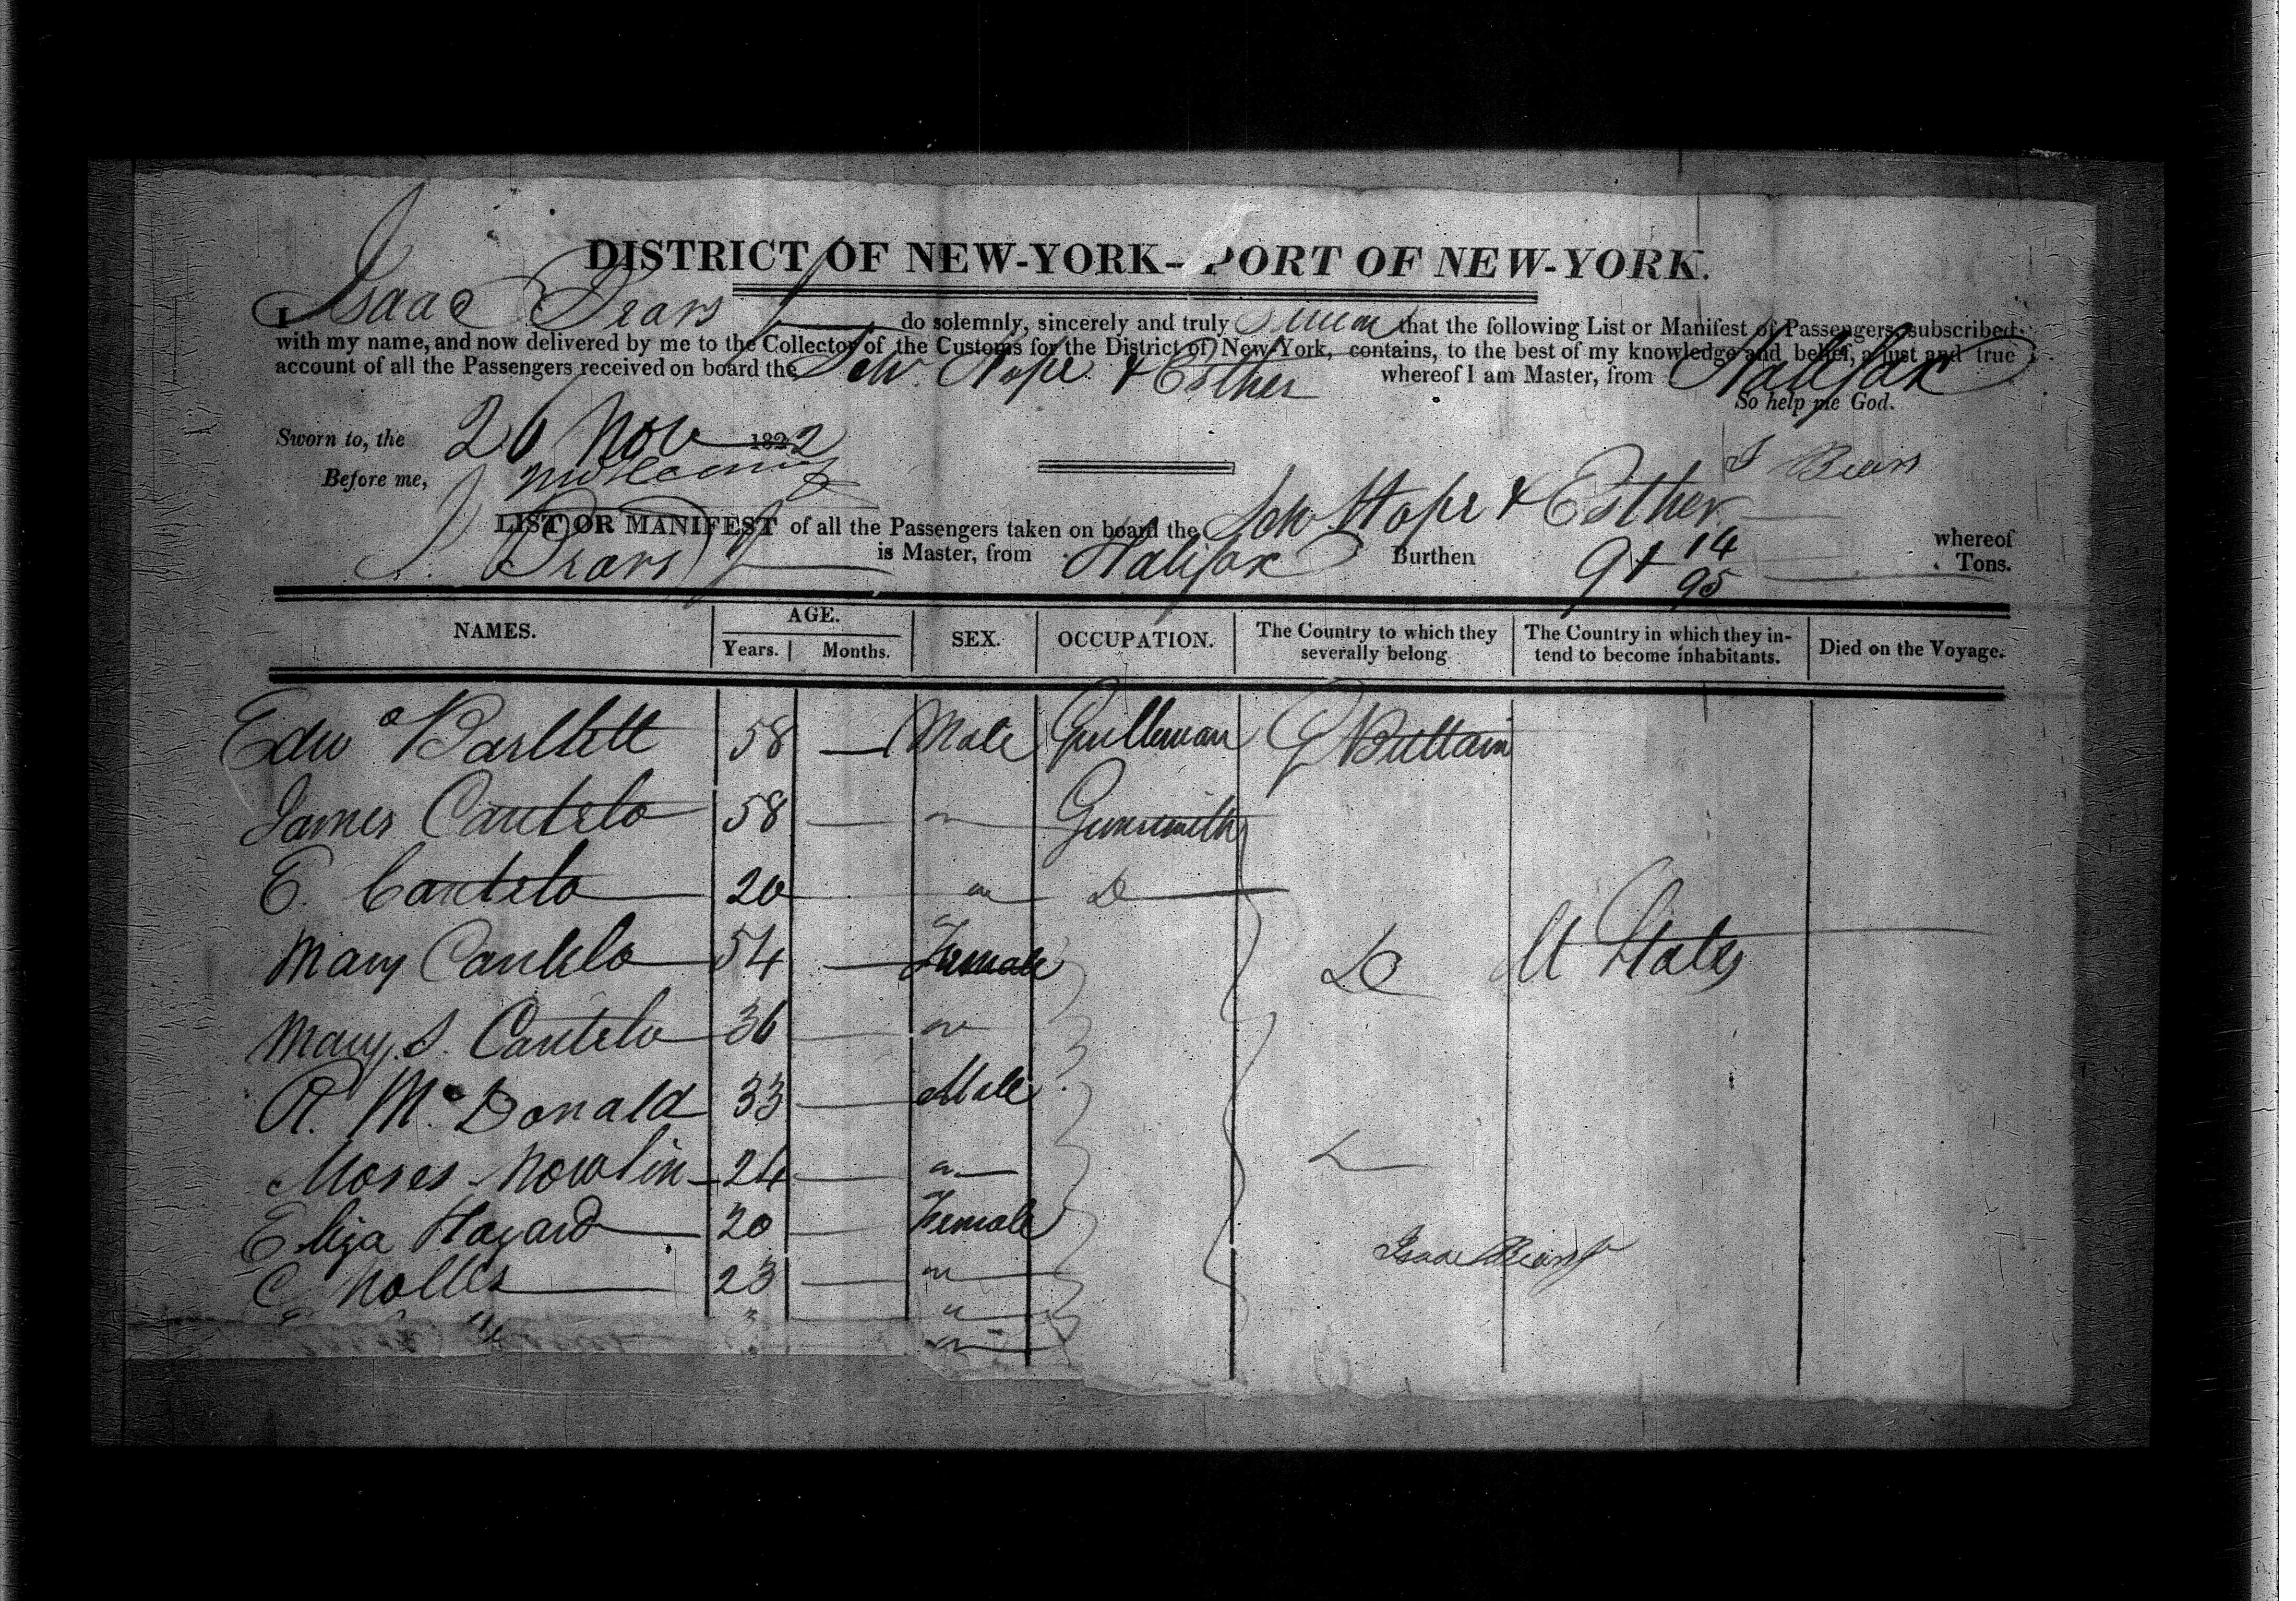 DISTRICT OF NEW-YORK—PORT OF NEW-YORK.
I Isaac Bears do solemnly, sincerely and truly Swear that the following List or Manifest of Passengers, subscribed
with my name, and now delivered by me to the Collector of the Customs for the District of New York, contains, to the best of my knowledge and belief, a just and true
account of all the Passengers received on board the Schr. Hope & Esther whereof I am Master, from Halifax
So help me God.
Sworn to, the 26 Nov 1822
Before me,
I Bears
LIST OR MANIFEST of all the Passengers taken on board the Sch Hope & Esther whereof
I. Bears is Master, from Halifax Burthen 91 14/95 Tons.
NAMES. AGE. Years. Months. SEX. OCCUPATION. The Country to which they severally belong The Country in which they intend to become inhabitants. Died on the Voyage.
Edwd Bartlett 58 — Male Gentleman G Brittain
James Cantelo 58 — " Gunsmith
E. Cantelo 20 — " Do
Mary Cantelo 54 — Female Do U States
Mary S. Cantelo 36 — "
R. McDonald 33 — Male
Moses Nowlin 24 — "
Eliza Hazard 20 — Female
C Nolles 23 — "
Isaac Bears
" "
"